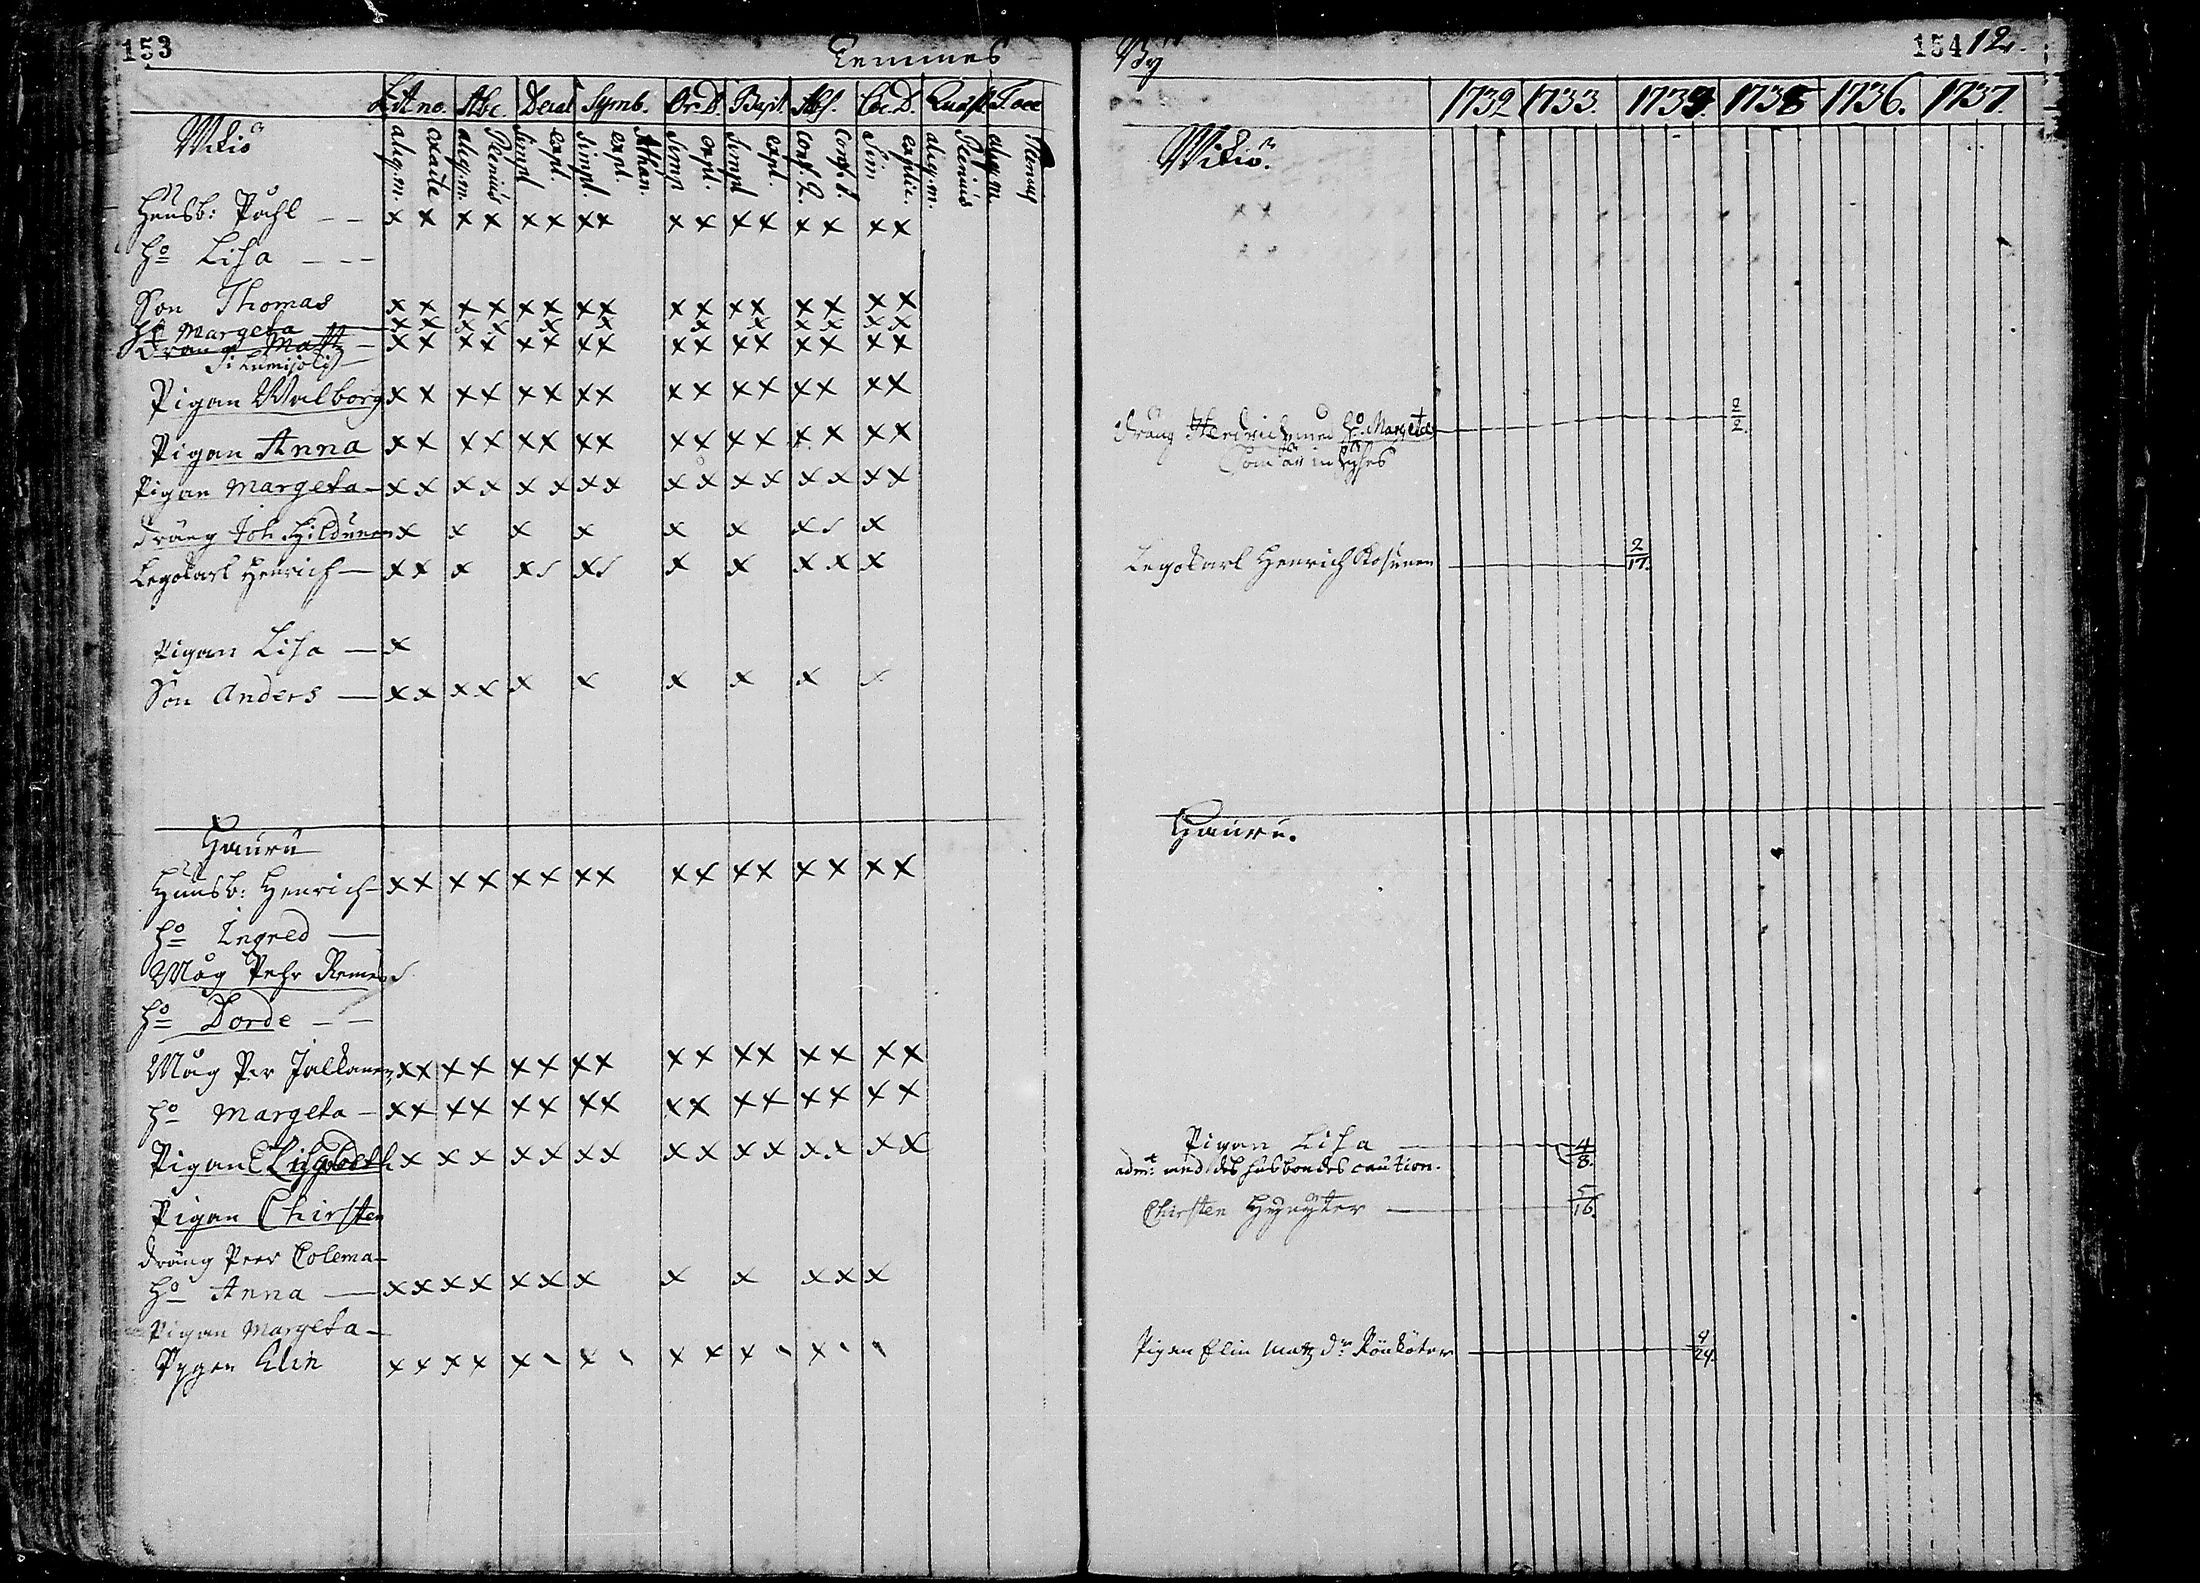 153
Temmes
Lit no. Abc. Decal Symb. Or. D. Bapt. Abs. Coe. D. Quæst. Tace
aliq. m. exacte aliq. m. Plenius Simpl expl. Simpl. expl. Athan. Simp expl. Simpl expl. Conf. 2. Conf. 1. Sim explic. aliq. m. Plenius aliq. m. Plenius
Mikio
Husb: Påhl — — x x x x x x x x x x x x x x x x
ho Lisa — — —
Son Thomas x x x x x x x x x x x x x x x x
ho Margeta — x x x x x x x x x x x x
Dräng Matz — x x x x x x x x x x x x x x x x
i Lumijoki
Pigan Walborg x x x x x x x x x x x x x x x x
Pigan Anna x x x x x x x x x x x x x x x x
Pigan Margeta — x x x x x x x x x x x x x x x x
dräng Joh. Hildunen x x x x x x x x
Legokarl Henrich — x x x x x x x x x x
Pigan Lisa — x
Son Anders — x x x x x x x x x
Hauru
Husb: Henrich — x x x x x x x x x x x x x x x x
ho Ingred —
Måg Pehr Remes
ho Dorde — —
Måg Per Jalkanen x x x x x x x x x x x x x x x x
ho Margeta — x x x x x x x x x x x x x x x x
Pigan Lisabeth x x x x x x x x x x x x x x x
Pigan Chirsten
dräng Peer Colema —
ho Anna — x x x x x x x x x x x x
Pigan Margeta —
Pygan Elin x x x x x x x x x x
By
154 12.
1732 1733. 1734. 1735 1736. 1737.
Mikio.
dräng Hendrich med ho. Margeta — 2/2.
Legokarl Henrich Kosunen — 2/17.
Hauru.
Pigan Lisa — 4/8.
adm: med des husbondes caution.
Chirsten — 5/16.
Pigan Elin Matz dr. — 4/24.